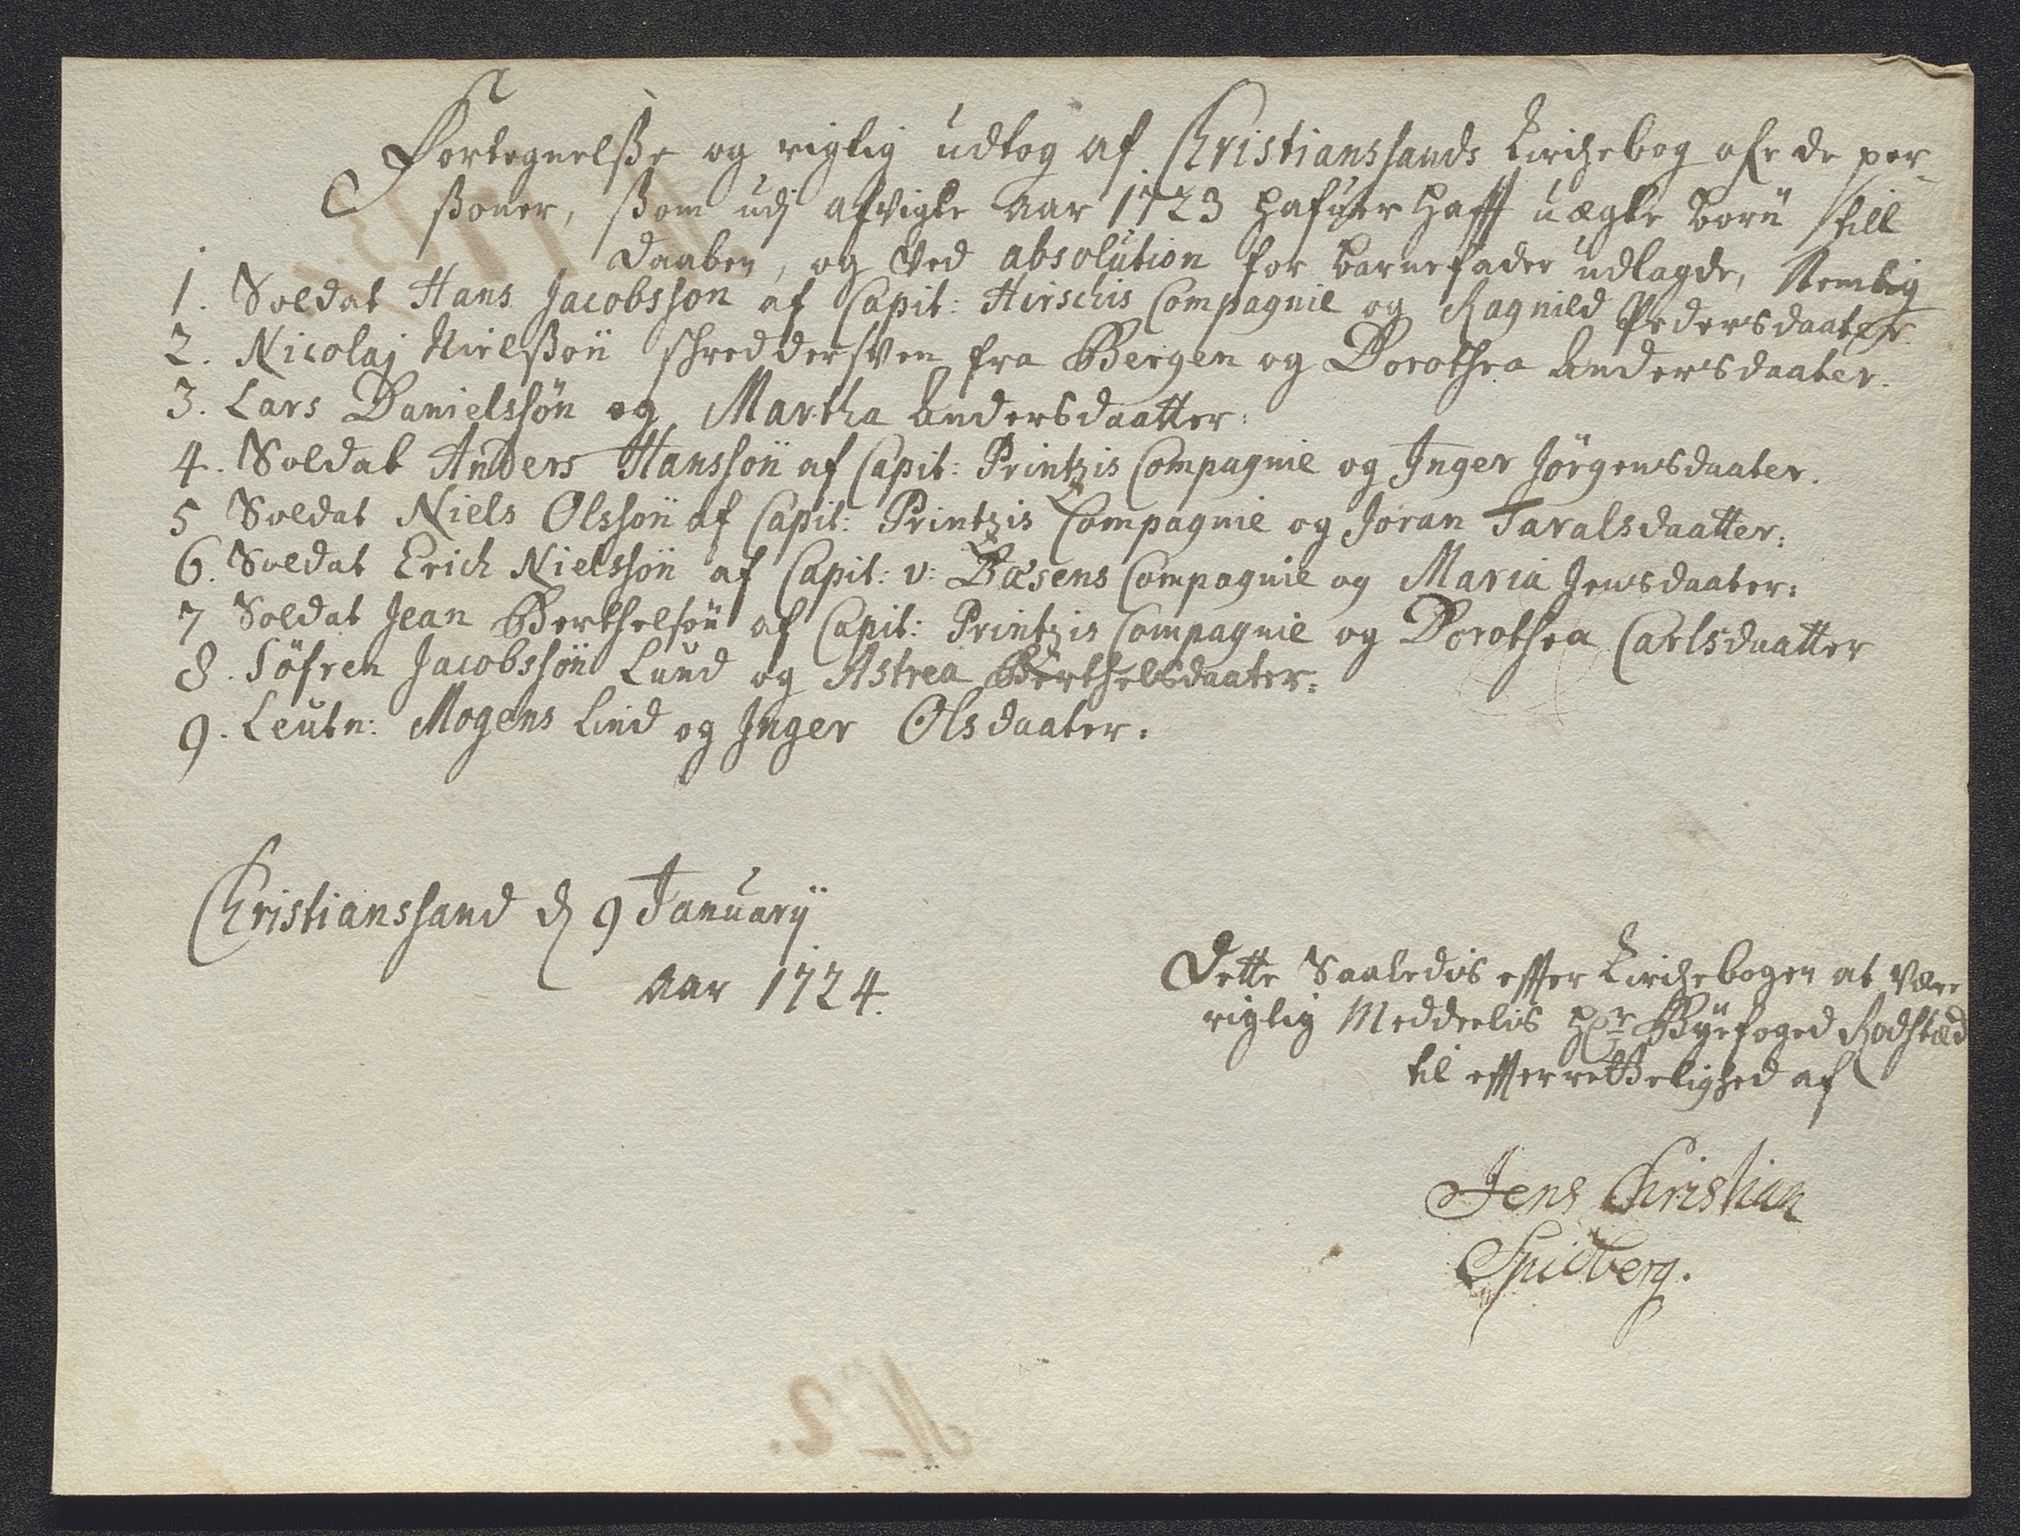 Fortegnelsße og rigtig udtog af Christianssands Kirchebog ofr de per-
ßoner, ßom udj afvigte Aar 1723 hafuer hafft uægte börn till
daaben, og ved absolution for barnefader udlagde, Nemlig
1. Soldat Hans Jacobsson af Capit: Hirschis Compagnie og Ragnild Pedersdaater.
2. Nicolaj Nielßön Skreddersven fra Bergen og Dorothea Andersdaater.
3. Lars Danielssön og Martha Andersdaatter:
4. Soldat Anders Hanssön af Capit: Printzis Compagnie og Inger Jörgensdaater.
5 Soldat Niels Olssön af Capit: Printzis Compagnie og Joran Taralsdaatter:
6. Soldat Erich Nielssön af Capit: v: Basens Compagnie og Maria Jensdaater:
7 Soldat Jean Berthelsön af Capit: Printzis Compagnie og Dorothea Carlsdaatter
8. Söfren Jacobssön Lund og Astrea Berthelsdaater:
9. Leutn: Mogens Lind og Inger Olsdaater:
Christianssand d 9 Januarij
Aar 1724.
Dette Saaledis effter Kirchebogen at være
rigtig Meddeelis Hr Byefoged Rodsted
til effterrettelighed af
Jens Christian
Spidberg.
No 2.